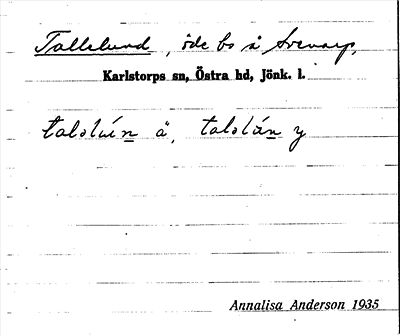 Tallelund, öde bs å Svenarp,
Karlstorps sn, Östra hd, Jönk. l.
taləlún ä, taləlún y
Annalisa Anderson 1935